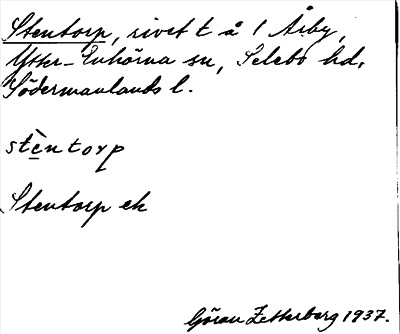 Stentorp, rivet t å 1 Åby,
Ytter-Enhörna sn, Selebo hd,
Södermanlands l.
stèntorp
Stentorp ek
Göran Zetterberg 1937.